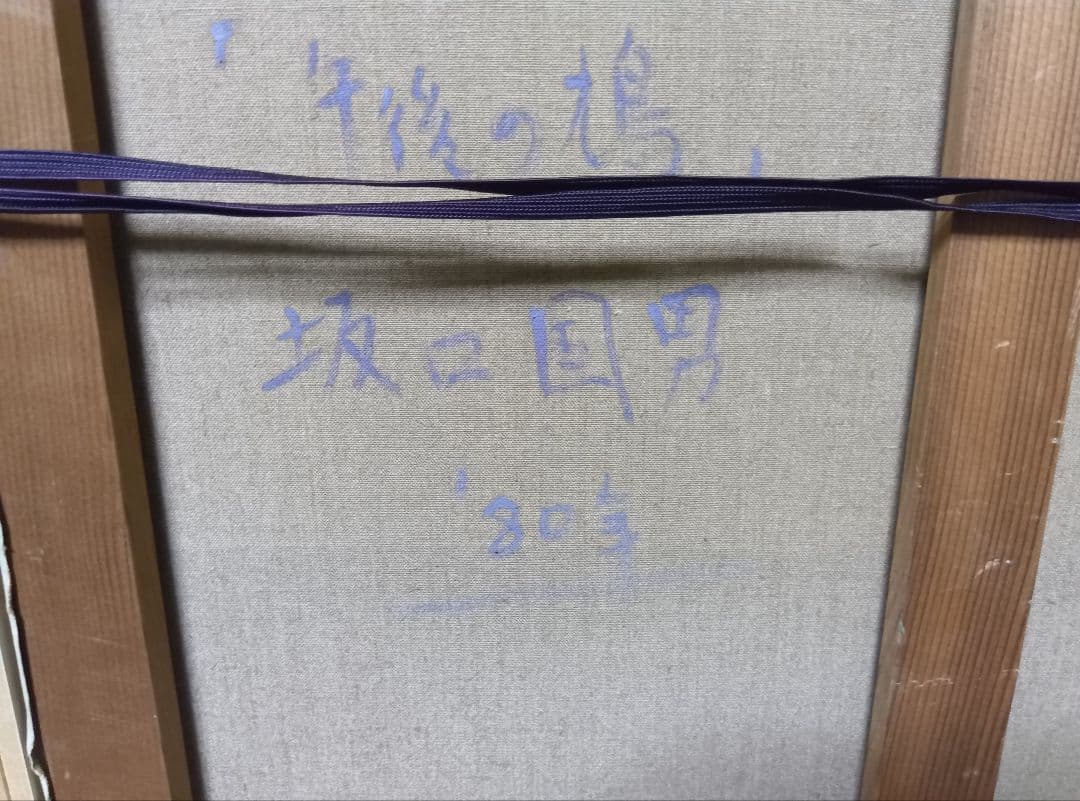 「午後の鳩」
坂口国男
'80年